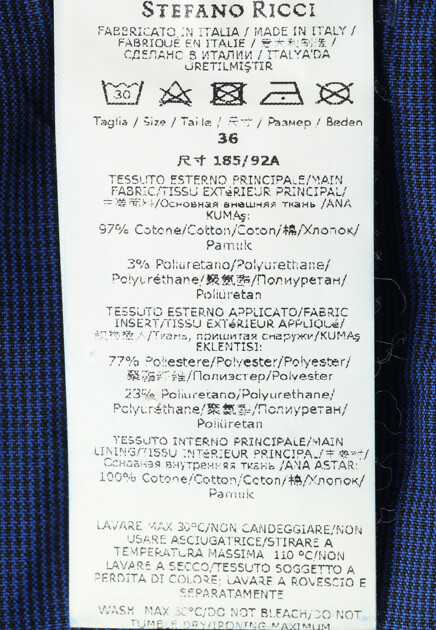 STEFANO RICCI
FABBRICATO IN ITALIA / MADE IN ITALY /
FABRIQUÉ EN ITALIE / 意大利制造 /
СДЕЛАНО В ИТАЛИИ / ITALYA'DA
ÜRETILMIŞTIR
30
Taglia / Size / Taille / 尺寸 / Размер / Beden
36
尺寸 185/92A
TESSUTO ESTERNO PRINCIPALE/MAIN
FABRIC/TISSU EXTéRIEUR PRINCIPAL/
主要面料/Основная внешняя ткань /ANA
KUMAş:
97% Cotone/Cotton/Coton/棉/Хлопок/
Pamuk
3% Poliuretano/Polyurethane/
Polyuréthane/聚氨酯/Полиуретан/
Poliüretan
TESSUTO ESTERNO APPLICATO/FABRIC
INSERT/TISSU EXTéRIEUR APPLIQUé/
织物嵌入/Ткань, пришитая снаружи/KUMAş
EKLENTISI:
77% Poliestere/Polyester/Polyester/
聚酯纤维/Полиэстер/Polyester
23% Poliuretano/Polyurethane/
Polyuréthane/聚氨酯/Полиуретан/
Poliüretan
TESSUTO INTERNO PRINCIPALE/MAIN
LINING/TISSU INTéRIEUR PRINCIPAL/主要衬/
Основная внутренняя ткань /ANA ASTAR:
100% Cotone/Cotton/Coton/棉/Хлопок/
Pamuk
LAVARE MAX 30°C/NON CANDEGGIARE/NON
USARE ASCIUGATRICE/STIRARE A
TEMPERATURA MASSIMA 110 °C/NON
LAVARE A SECCO/TESSUTO SOGGETTO A
PERDITA DI COLORE; LAVARE A ROVESCIO E
SEPARATAMENTE
WASH MAX 30°C/DO NOT BLEACH/DO NOT
TUMBLE DRY/IRONING MAXIMUM